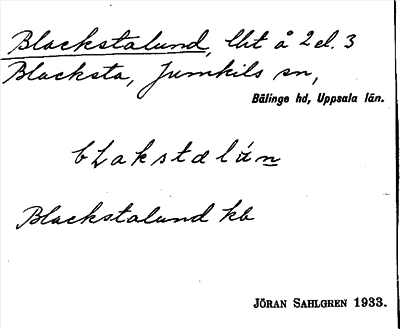 Blackstalund, lht å 2 el. 3
Blacksta, Jumkils sn,
Bälinge hd, Uppsala län.
Blackstalund kb
JÖRAN SAHLGREN 1933.